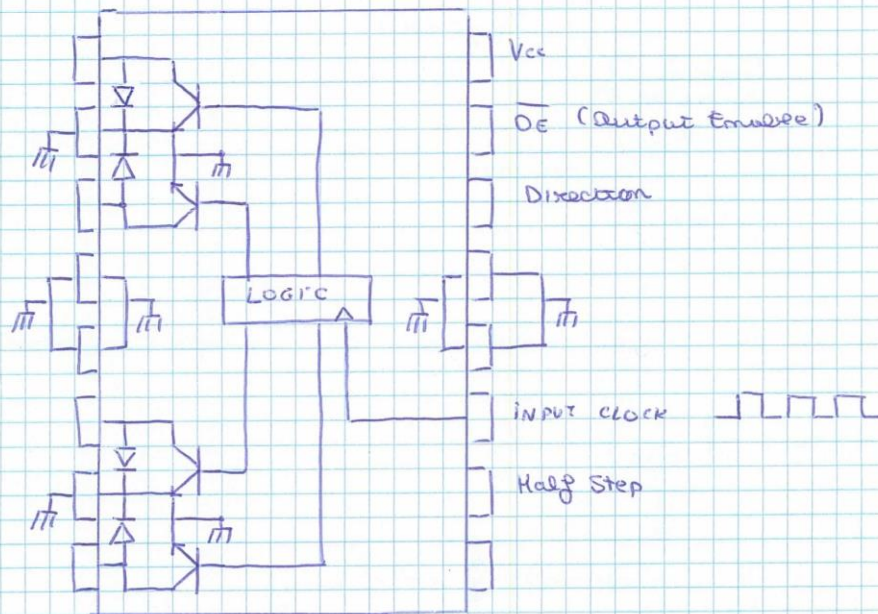 Vcc
OE (Output Enable)
Direction
LOGIC
INPUT CLOCK
Half Step